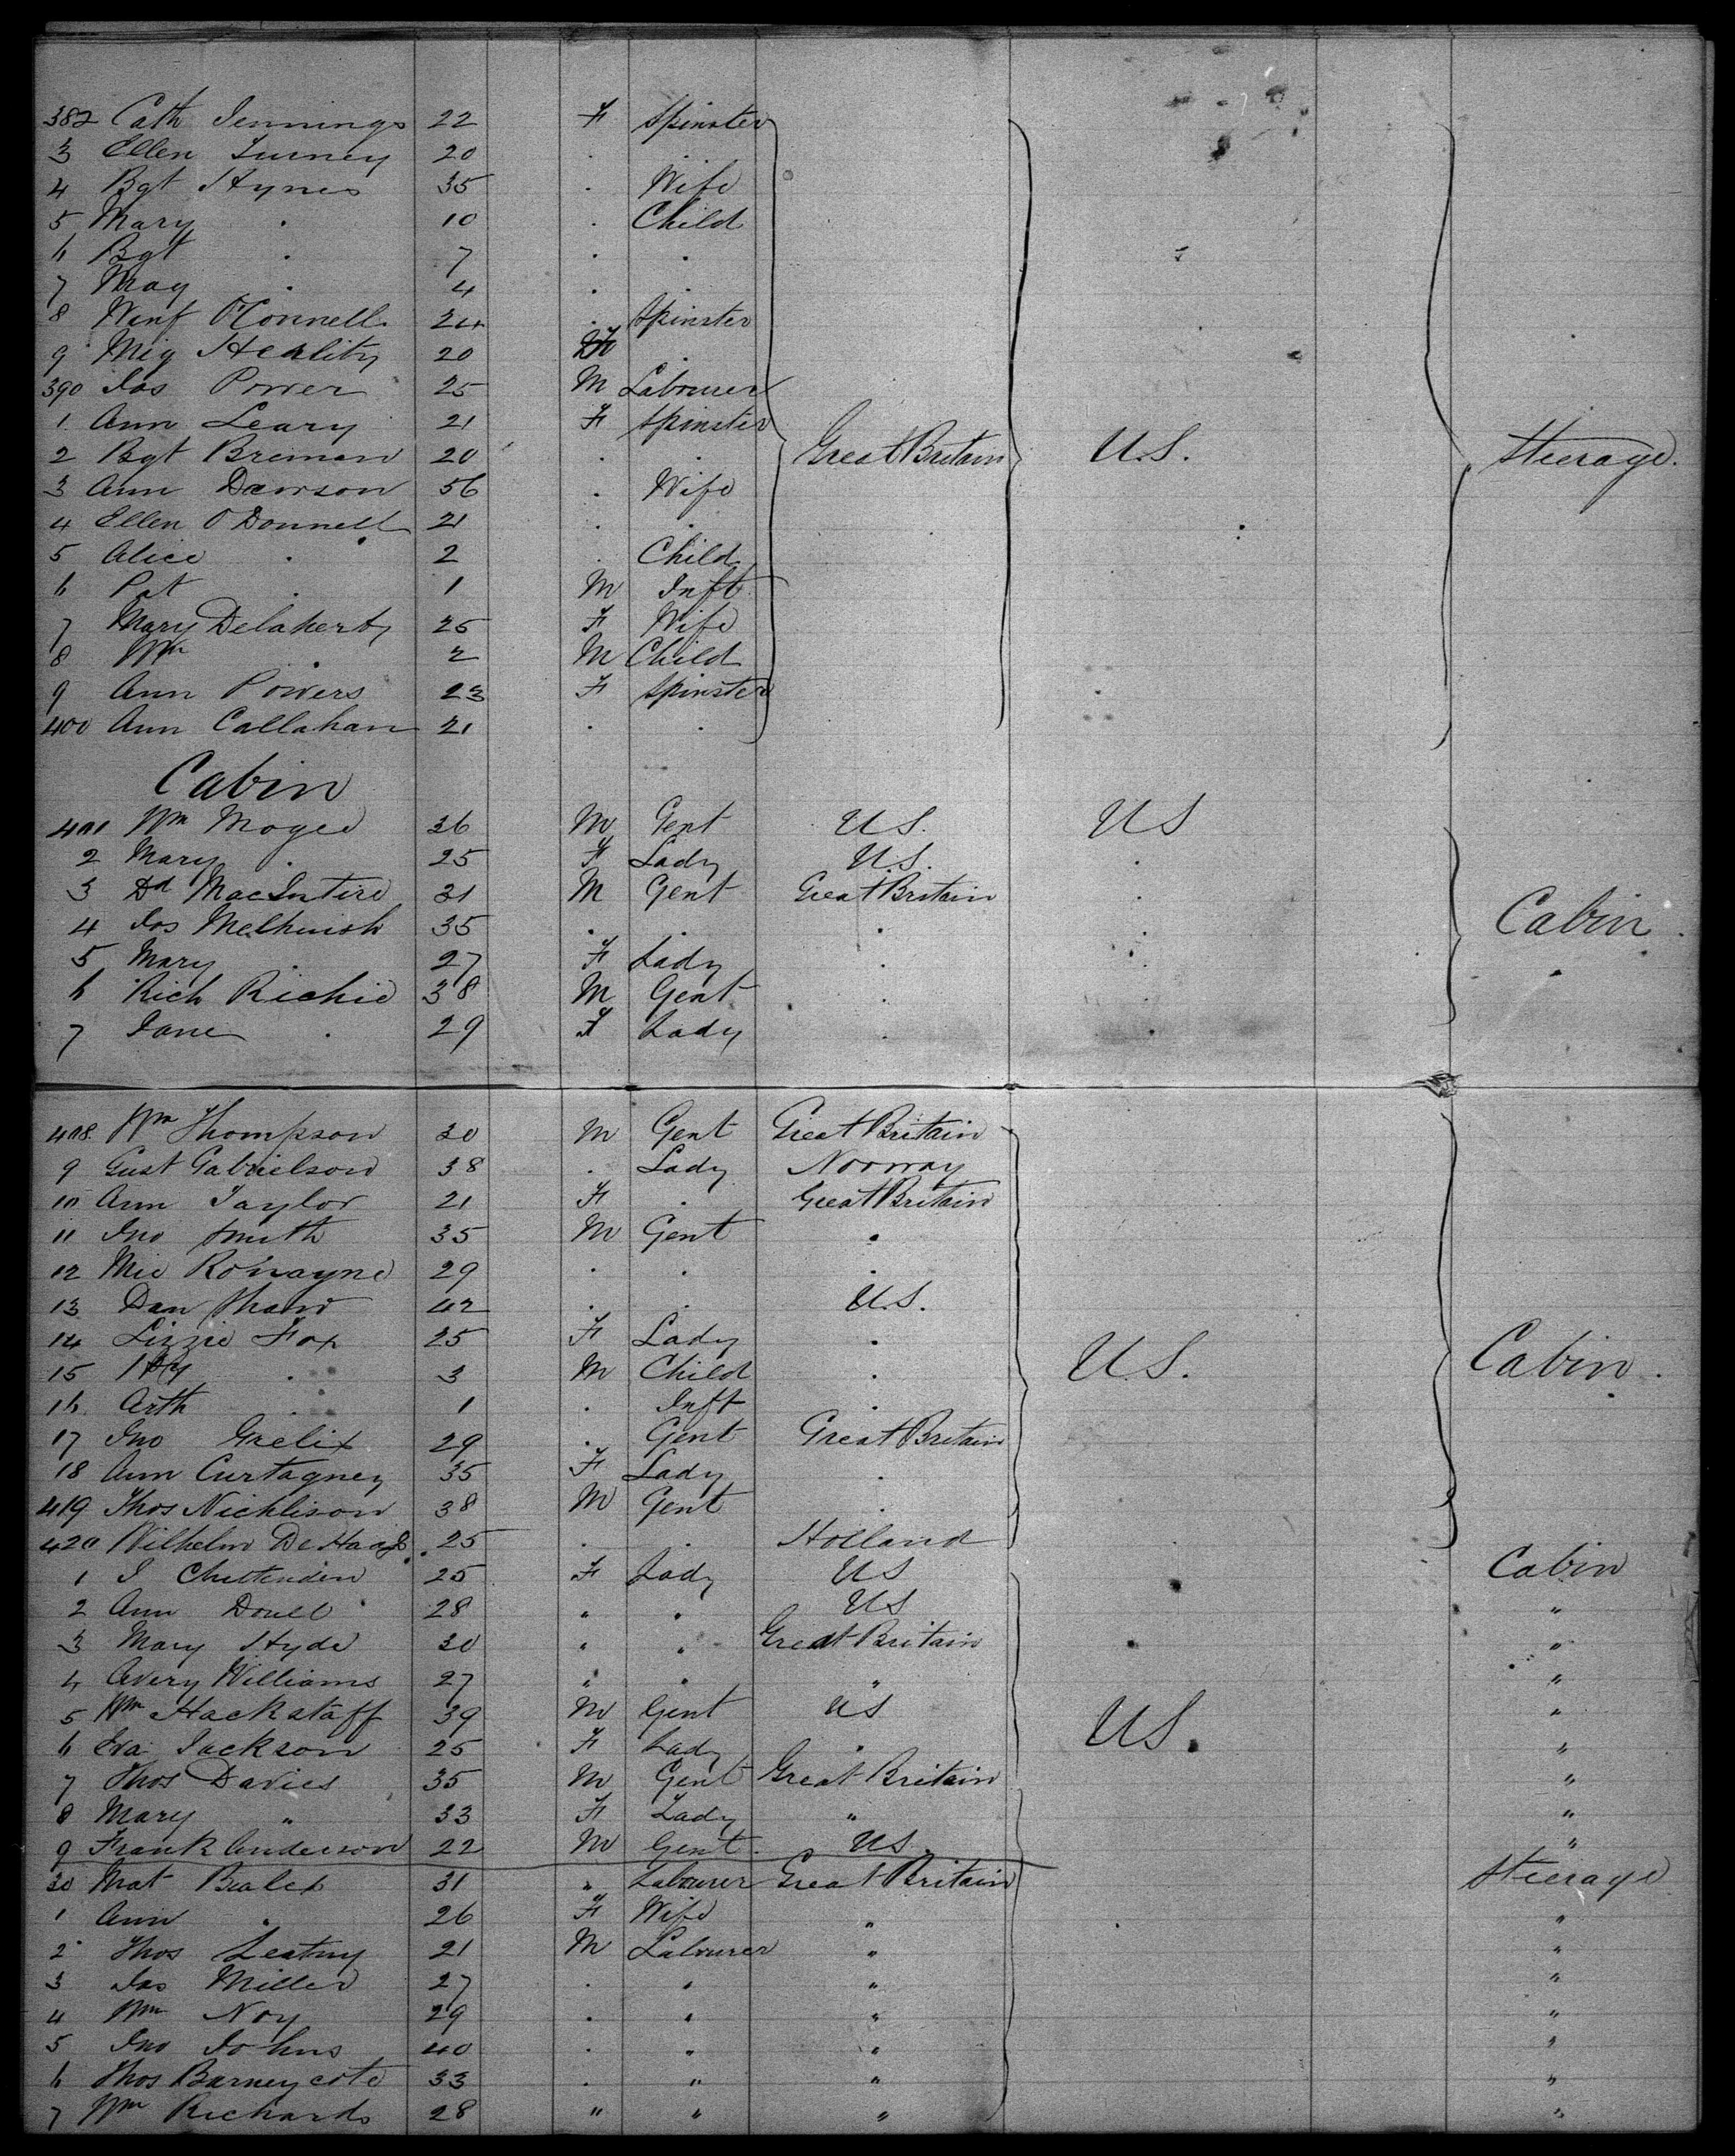 382 Cath Jennings 22 F Spinster
3 Ellen Turney 20 . .
4 Bgt Hynes 35 . Wife
5 Mary . 10 . Child
6 Bgt . 7 . .
7 May . 4 . .
8 Winf O'Connell 24 . Spinster
9 Mig 20 .
390 Jas Power 25 M Labourer
1 Ann Leary 21 F Spinster
2 Bgt Brennan 20 . . Great Britain U.S. Steerage.
3 Ann Dawson 56 . Wife
4 Ellen O Donnell 21 . .
5 Alice . 2 . Child
6 Pat . 1 M Inft
7 Mary Delaherty 25 F Wife
8 Wm . 2 M Child
9 Ann Powers 23 F Spinster
400 Ann Callahan 21 . .
Cabin
401 Wm Moged 36 M Gent U.S. US
2 Mary . 25 F Lady U.S. .
3 Dd MacIntire 31 M Gent Great Britain .
4 Jas Melhuish 35 . . . . Cabin .
5 Mary . 27 F Lady . .
6 Rich Richie 38 M Gent . .
7 Jane . 29 F Lady . .
408. Wm Thompson 30 M Gent Great Britain
9 Gust Gabrielson 38 . Lady Norway
10 Ann Taylor 21 F . Great Britain
11 Jno Smith 35 M Gent .
12 Mic Ronayne 29 . . .
13 Dan Shaw 42 . . U.S.
14 Lizzie Fox 25 F Lady .
15 Hy . 3 M Child . U.S. Cabin .
16 Arth . 1 . Inft .
17 Jno Grelix 29 . Gent Great Britain
18 Ann Curtagney 35 F Lady .
419 Thos Nichlison 38 M Gent .
420 Wilhelm De Haas 25 . . Holland
1 J Chittenden 25 F Lady US Cabin
2 Ann 28 " " US "
3 Mary Hyde 30 " " Great Britain "
4 Avery Williams 27 " " " "
5 Wm Hackstaff 39 M Gent US US. "
6 Eva Jackson 25 F Lady . "
7 Thos Davies 35 M Gent Great Britain "
8 Mary " 33 F Lady " "
9 Frank Anderson 22 M Gent. US. "
30 Mat 31 " Labourer Great Britain Steerage
1 Ann . 26 F Wife " "
2 Thos 21 M Labourer " "
3 Jas Miller 27 . " " "
4 Wm Noy 29 . " " "
5 Jno Johns 40 . " " "
6 Thos Barneycote 33 . " " "
7 Wm Richards 28 " " " "